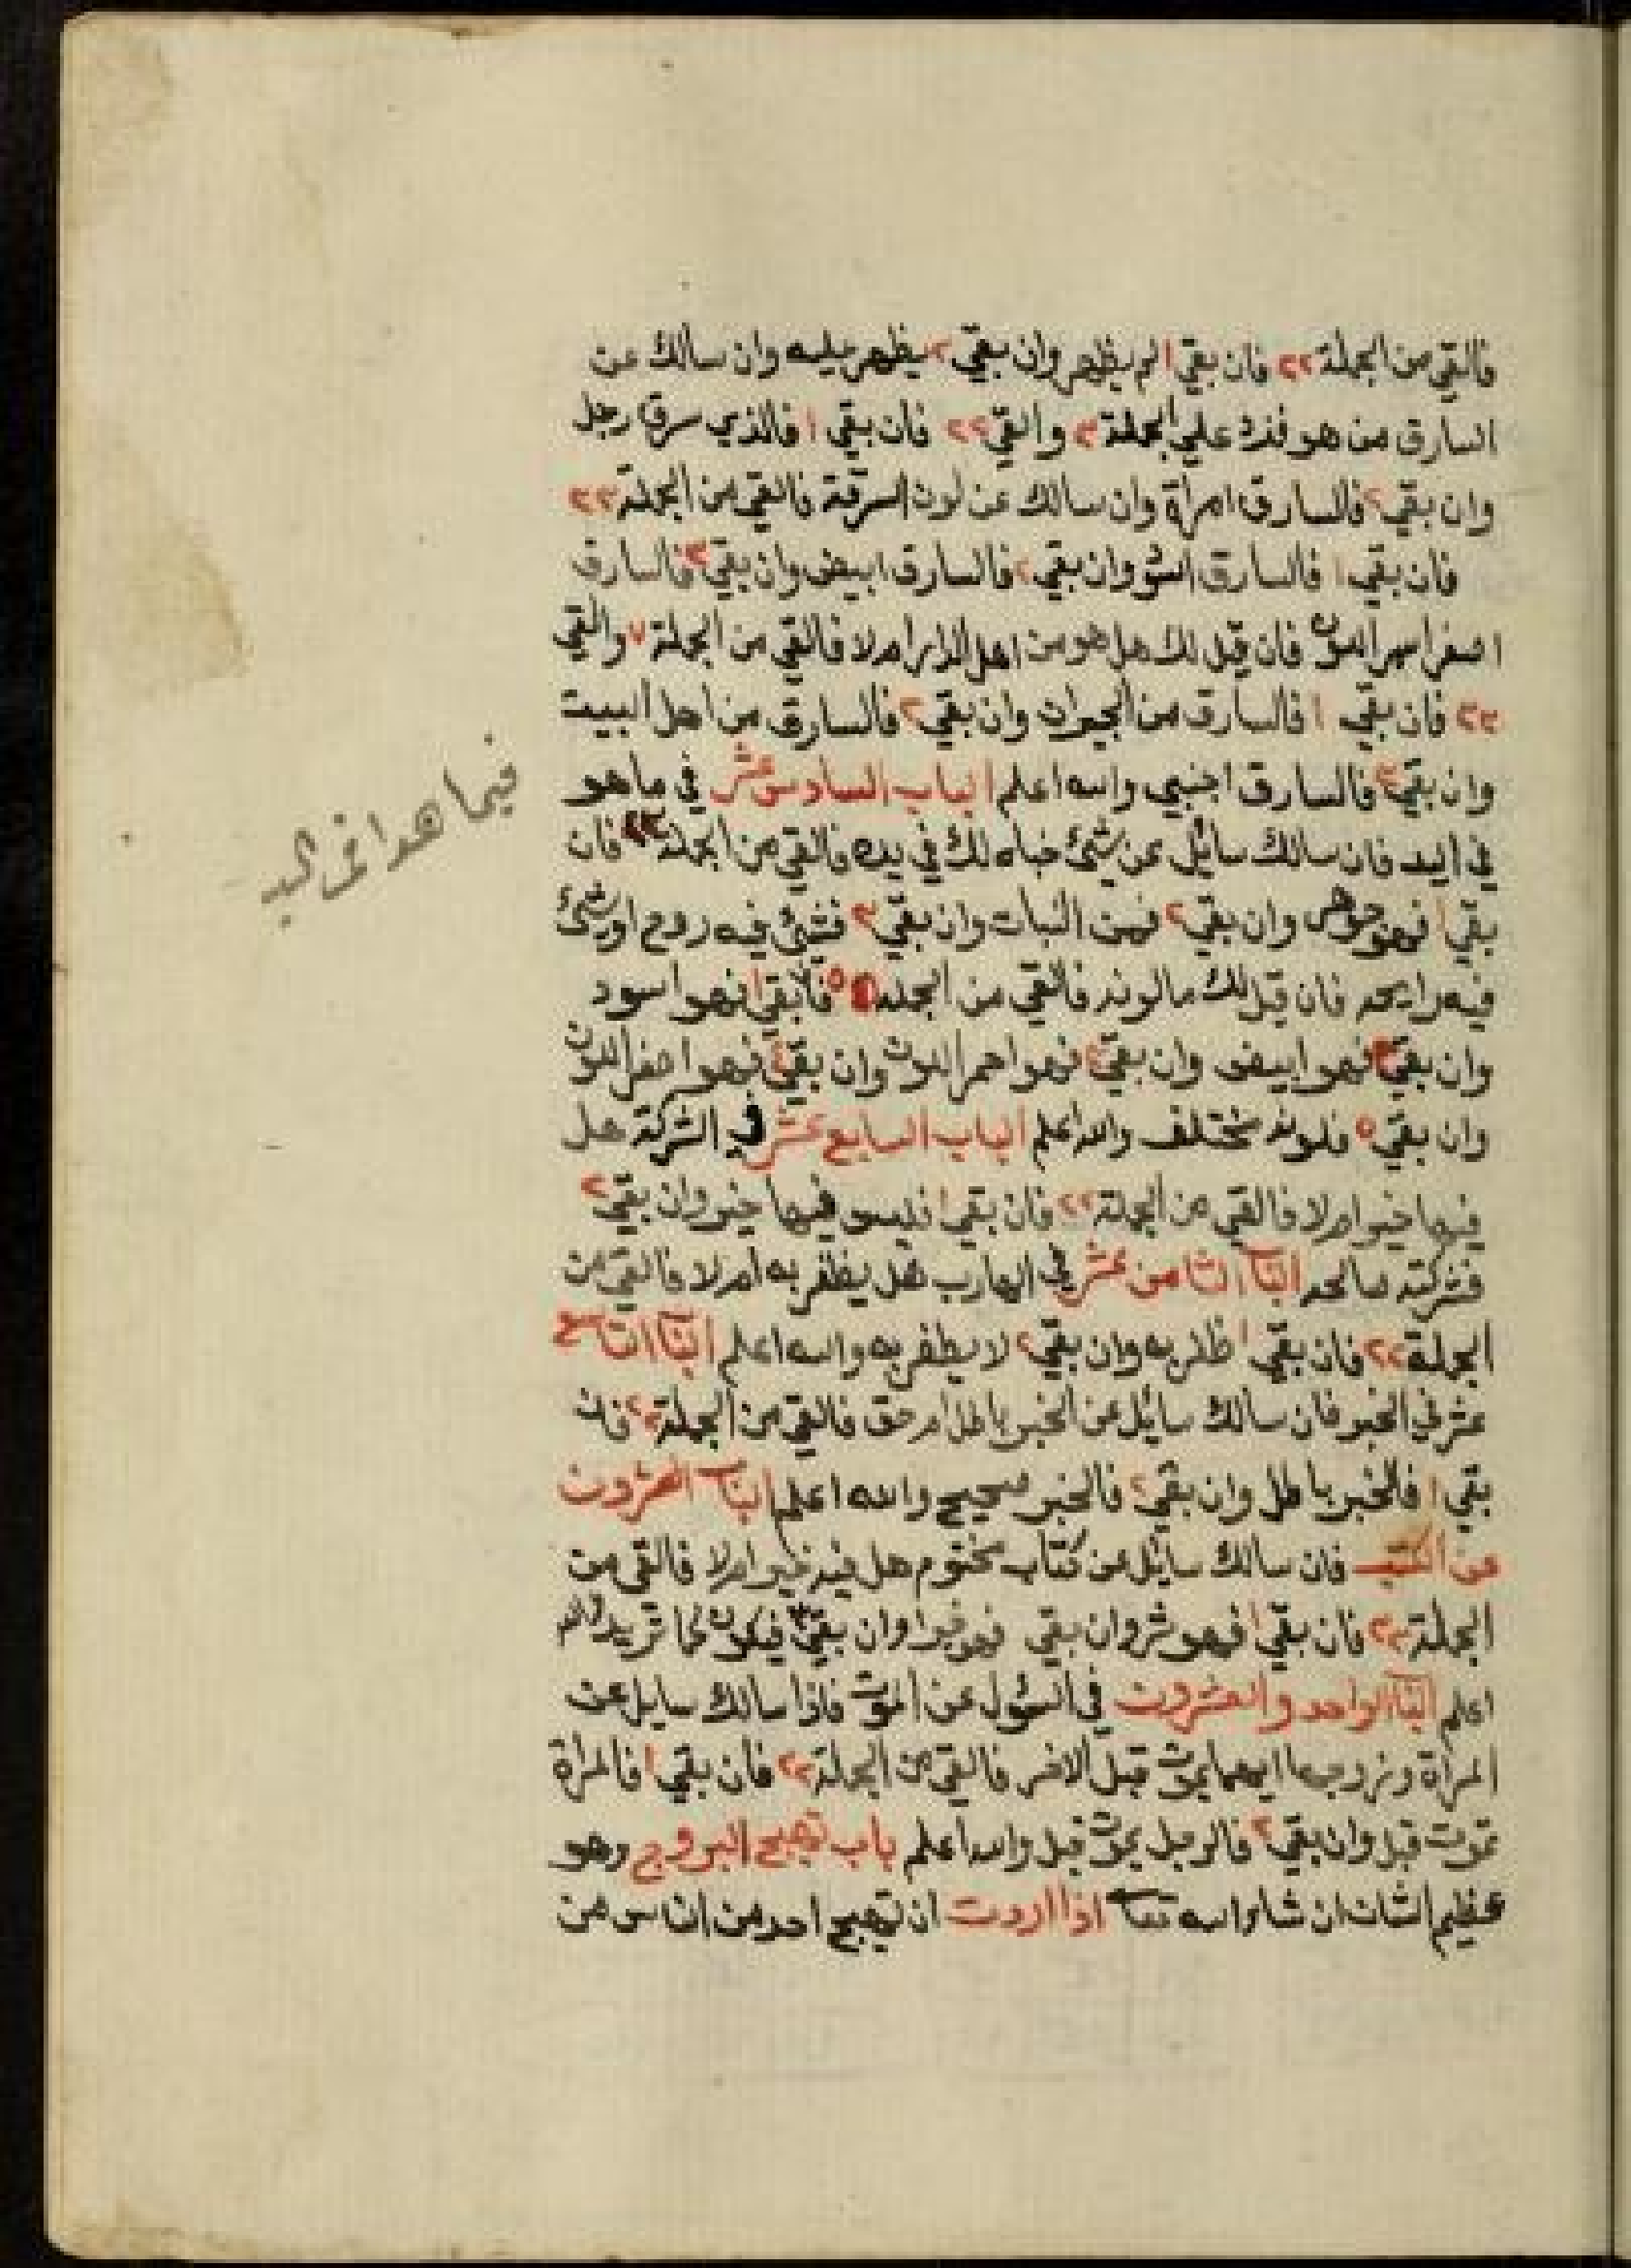 فالقي من الجملة ٢٢ فان بقي ١ لم يظهر وان بقي ٢ يظهر عليه وان سالك عن
السارق من هو فزد علي الجملة ٣ والقي ٢٢ فان بقي ١ فالذي سرق رجل
وان بقي ٢ فالسارق امراة وان سالك عن لون السرقة فالقي من الجملة ٣٣
فان بقي ١ فالسارق اسود وان بقي ٢ فالسارق ابيض وان بقي ٣ فالسارق
اصفر اسمر اللون فان قيل لك هل هو من اهل الدار ام لا فالقي من الجملة ٧ والقي
٣٣ فان بقي ١ فالسارق من الجيران وان بقي ٢ فالسارق من اهل البيت
وان بقي ٣ فالسارق اجنبي والله اعلم الباب السادس عشر في ما هو
في اليد فان سالك سائل عن شئ خباه لك في يده فالقي من الجملة ٣٣ فان
بقي ١ فهو جوهر وان بقي ٢ فهن النبات وان بقي ٣ فشئ فيه روح او شئ
فيه رايحه فان قيل لك ما لونه فالقي من الجمله ٥ فان بقي ١ فهو اسود
وان بقي ٢ فهو ابيض وان بقي ٣ فهو احمر اللون وان بقي ٤ فهو اصفر اللون
وان بقي ٥ فلونه مختلف والله اعلم الباب السابع عشر في الشركة هل
فيها خير ام لا فالقي من الجملة ٢٢ فان بقي ١ فليس فيها خير وان بقي ٢
فشركته صالحه البا الثامن عشر في الهارب هل يظفر به ام لا فالقي من
الجملة ٢٢ فان بقي ١ ظفر به وان بقي ٢ لا يظفر به والله اعلم البا التاسع
عشر في الخبر فان سالك سائل عن الخبر باطل ام حق فالقي من الجملة ٢٢ فان
بقي ١ فالخبر باطل وان بقي ٢ فالخبر صحيح والله اعلم البا العشرون
من الكتب فان سالك سائل عن كتاب مختوم هل فيه خير ام لا فالقي من
الجملة ٣٣ فان بقي ١ فهو شر وان بقي فهو خيرا وان بقي ٣ فيكون كما تريد والله
اعلم البا الواحد والعشرون في السول عن الموت فاذا سالك سايل عن
المراة وزوجها ايهما يموت قبل الاخر فالقي من الجملة ٢٢ فان بقي ١ فالمراة
تموت قبل وان بقي ٢ فالرجل يموت قبل والله اعلم باب تهييج البروج وهو
عظيم الشان ان شاء الله تعا اذا اردت ان تهييج احد من الناس من
فيما هو في اليد